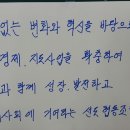 없는 변화와 혁신을 바탕으로
경제, 지도사업을 확충하여
과 함께 성장, 발전하고
사회에 기여하는 선도 협동조